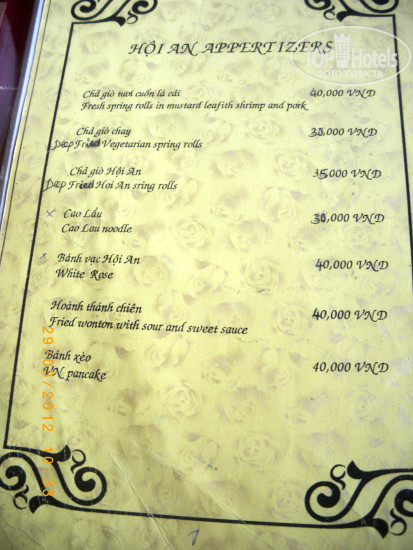 HỘI AN APPERTIZERS
TOPHotels
ФОТО ТУРИСТА
Chả giò tươi cuốn lá cải 40,000 VND
Fresh spring rolls in mustard leafith shrimp and pork
Chả giò chay 30,000 VND
Deep Fried Vegetarian spring rolls
Chả giò Hội An 35,000 VND
Deep Fried Hoi An sring rolls
x Cao Lầu 30,000 VND
Cao Lau noodle
x Bánh vạc Hội An 40,000 VND
White Rose
Hoành thánh chiên 40,000 VND
Fried wonton with sour and sweet sauce
Bánh xèo 40,000 VND
VN pancake
1